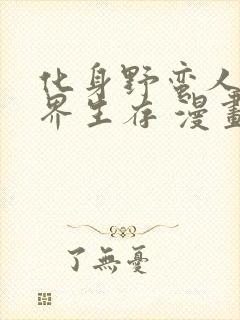 化身野蛮人
界生存 漫畫
了無憂